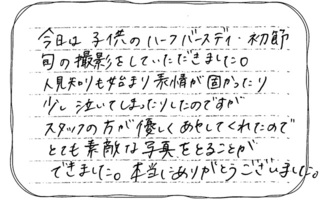 今日は子供のハーフバースディ・初節
句の撮影をしていただきました。
人見知りも始まり表情が固かったり
少し泣いてしまったりしたのですが
スタッフの方が優しくあやしてくれたので
とても素敵な写真をとることが
できました。本当にありがとうございました。